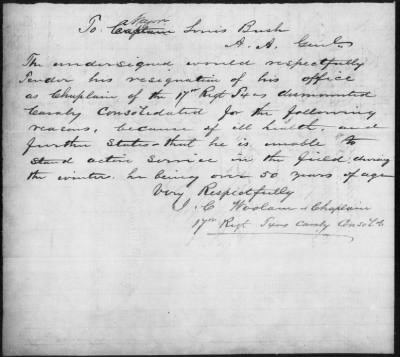 Major
To Captain Louis Bush
A. A. Genl
The undersigned would respectfully
Tender his resignation of his office
as Chaplain of the 17th Regt Txas dismounted
Cavalry Consolidated for the following
reasons, because of ill health, and
further States that he is unable to
stand active Service in the field during
the winter. he being over 50 years of age
Very Respectfully
J. C. Woolam Chaplain
17th Regt Txas Cavalry Consol